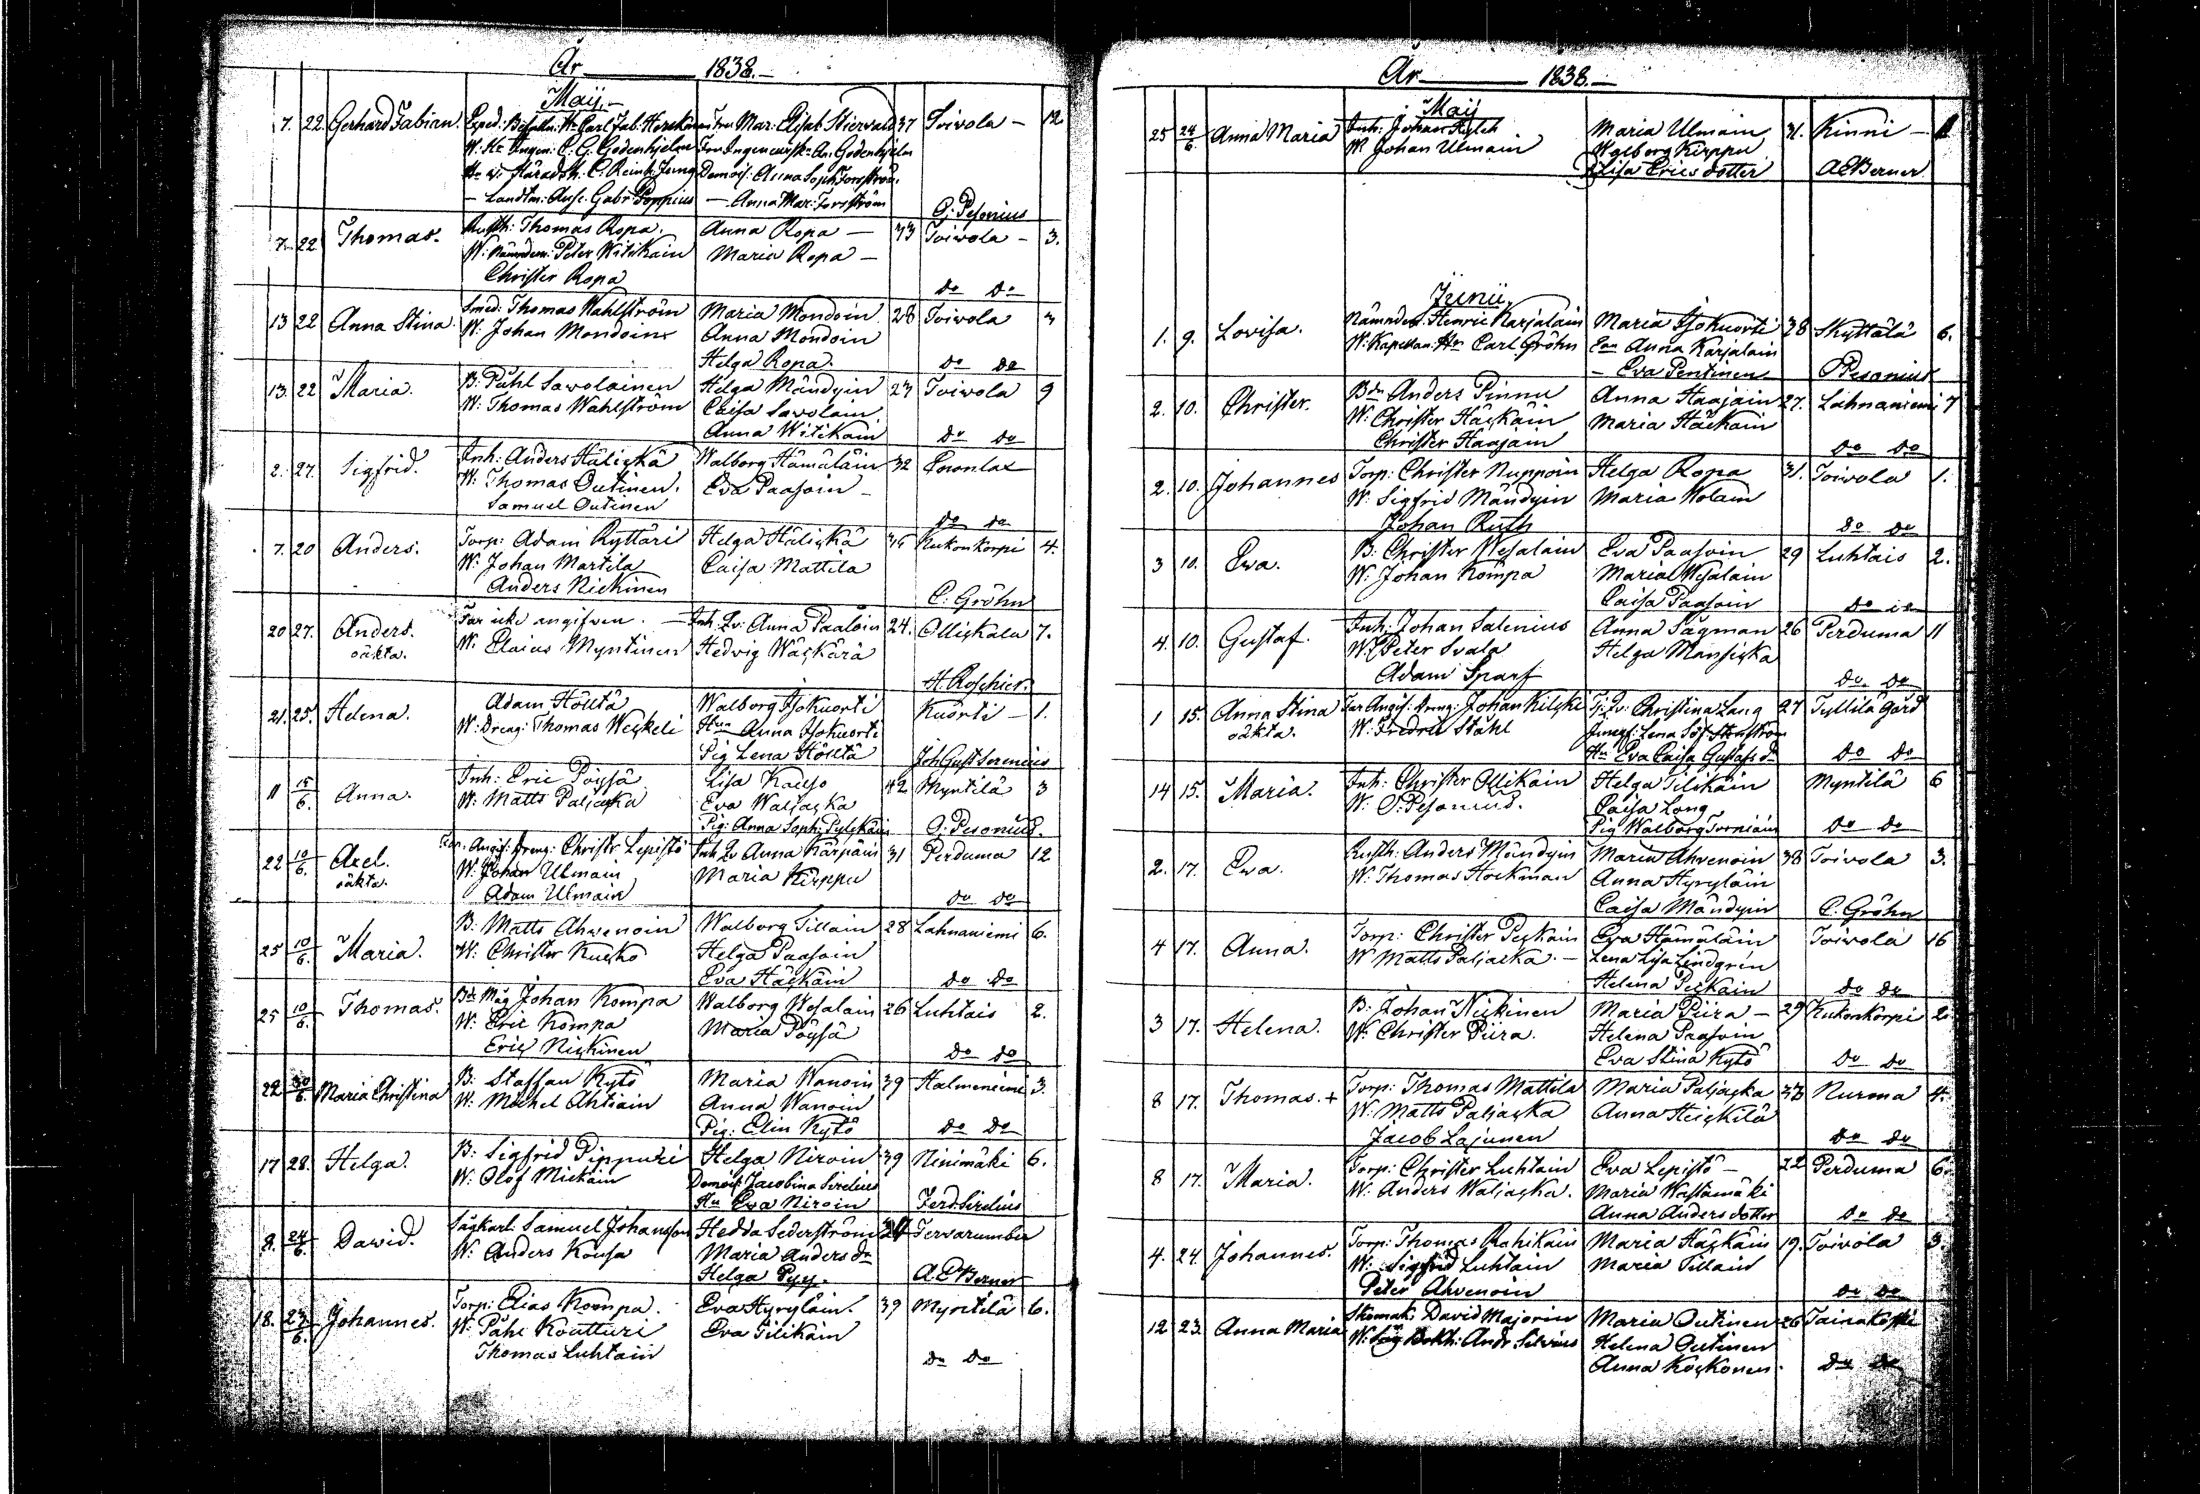 År 1838.
Maij.
7. 22 Gerhard Fabian. Exped: Befallm: Hr Carl Fab: Fru Mar: Elisab Stiervald 37 Toivola 12
W. Hr Ingen: C. G. Godenhjelm Fru Ingeneursk: An. Godenhjelm
Hr v. Häradsh. C. Reinh. Jung Demois: Anna Soph Forsström.
Landtm: Ausc. Gabr. Poppius Anna Mar: Forsström O: Pesonius
7. 22 Thomas. Rusth: Thomas Ropa. Anna Ropa 43 Toivola 3.
W: Nämndem: Peter Witikain Maria Ropa
Christer Ropa do do
13 22 Anna Stina Smed: Thomas Wahlström Maria Mondoin 28 Toivola 3
W. Johan Mondoin Anna Mondoin
Helga Ropa. do do
13. 22 Maria. B: Påhl Sawolainen Helga Mändyin 23 Toivola 9
W: Thomas Wahlström Caisa Savolain
Anna Witikain do do
2. 27. Sigfrid. Inh: Anders Häliskä Walborg Hämäläin 32
W: Thomas Outinen. Eva Paasoin
Samuel Outinen do do
7. 20 Anders. Torp: Adam Ryttäri Helga Häliskä 36 Kukonkorpi 4.
W: Johan Martila Caisa Mattila
Anders Nickinen C: Gröhn
20 27. Anders. oäkta. Far icke angifven. Inh. Qv: Anna Paaloin 24. Ollikala 7.
W. Claius Myntinen Hedvig Wäskärä
H. Roschier.
21. 25. Helena. Adam Höltta Walborg Isokuorti Kuorti 1.
W: Dreng: Thomas Weskeli Hun Anna Isokuorti
Pig Lena Hölttä Joh Gust Serenius
11 15/6. Anna. Inh: Eric Pöysä Lisa Kauso 42 Myntilä 3
W: Matts Paljacka Eva Waljacka
Pig: Anna Soph: Pylckäin O: Pesonius.
22 10/6. Axel. oäkta. Far. Angif: Dreng: Christr Lepistö Inh. Qv Anna Kärpäin 31 Perduma 12
W: Johan Ulmain Maria Kirppu
Adam Ulmain do do
25 10/6. Maria. B: Matts Ahvenoin Walborg Tillain 28 Lahnaniemi 6.
W: Christer Kucko Helga Paasoin
Eva Häskäin do do
25 10/6. Thomas. Bde Måg Johan Kompa Walborg Wesalain 26 Luhtais 2.
W: Eric Kompa Maria Pöysä
Eric Nickinen do do
22 30/6. Maria Christina B: Staffan Kytö Maria Wanoin 39 Halmeniemi 3.
W: Michel Ahtiain Anna Wanoin
Pig: Elin Kytö do do
17 28. Helga. B: Sigfrid Pippuri Helga Niroin 39 Ninimäki 6.
W: Olof Mickäin Demois: Jacobina Sirelius
Hu Eva Niroin Ferd: Sirelius
8. 24/6. Dawid. Sågkarl: Samuel Johansson Hedda Sederström
W: Anders Kousa Maria Anders dr
Helga Pyy. A E Berner
18. 24/6. Johannes. Torp: Elias Kompa. Eva Hyryläin. 39 Myntilä 6.
W: Påhl Koutturi Eva Tilikäin
Thomas Luhtain do do
År 1838.
Maij
25 24/6 Anna Maria Inh: Johan Kylch Maria Ulmain 31. Kinni
W Johan Ulmain Walborg Kirppu
Lisa Erics dotter A E Berner
Junii.
1. 9. Lovisa. Nämndem: Henric Karjalain Maria Isokuorti 38 Kyttälä 6.
W: Kapellan: Hr Carl Gröhn Anna Karjalain
Eva Pentinen O Pesonius
2. 10. Christer. Bdn Anders Pinnu Anna Haajain 27. Lahnaniemi 7
W: Christer Häskäin Maria Häskäin
Christer Haajain do do
2. 10. Johannes Torp: Christer Nuppoin Helga Ropa 31. Toivola 1.
W: Sigfrid Mändyin Maria Wolain
Johan Ruth do do
3 10. Ewa. B: Christer Wesalain Eva Paasoin 29 Luhtais 2.
W: Johan Kompa Maria Wesalain
Caisa Paasoin do do
4. 10. Gustaf. Inh: Johan Salenius Anna Sågman 26 Perduma 11
W: Peter Svala Helga Mansicka
Adam Sparf do do
1 15. Anna Stina oäkta. Far Angif: Dreng: Johan Kilski Tj: Qv: Christina Lang 27 Tyllilä Gård
W: Fredric Ståhl Jungf: Lena Sof Stenström
Hu Eva Caisa Gustafs dr do do
14 15. Maria. Inh: Christer Ollikain Helga Tilikäin Myntilä 6
W: O: Pesonius. Caisa Long
Pig Walborg Torniain do do
2. 17. Ewa. Rusth: Anders Mändyin Maria Ahvenoin 38 Toivola 3.
W: Thomas Hockman Anna Hyryläin
Caisa Mändyin C. Gröhn
4 17. Anna. Torp: Christer Peskäin Eva Hämäläin Toivola 16
W Matts Paljacka. Lena Lisa Lindgrén
Helena Peskäin do do
3 17. Helena. B: Johan Nickinen Maria Piira 29 Kukonkorpi 2
W: Christer Piira. Helena Paasoin
Eva Stina Kytö do do
8 17. Thomas. + Torp: Thomas Mattila Maria Paljacka 33 Nurma 4.
W: Matts Paljacka Anna Heickilä
Jacob Lajunen do do
8 17. Maria. Torp: Christer Luhtain Eva Lepistö 22 Perduma 6.
W: Anders Waljacka. Maria Wastamäki
Anna Anders dotter do do
4. 24. Johannes. Torp: Thomas Rahikain Maria Häskäin 19. Toivola 3.
W: Sigfrid Luhtain Maria Tillain
Peter Ahvenoin do do
12 23. Anna Maria Skomak: David Majorin Maria Outinen 26
W: Såg Bokh: Andr. Silvius Helena Outinen
Anna Koskonen. do do